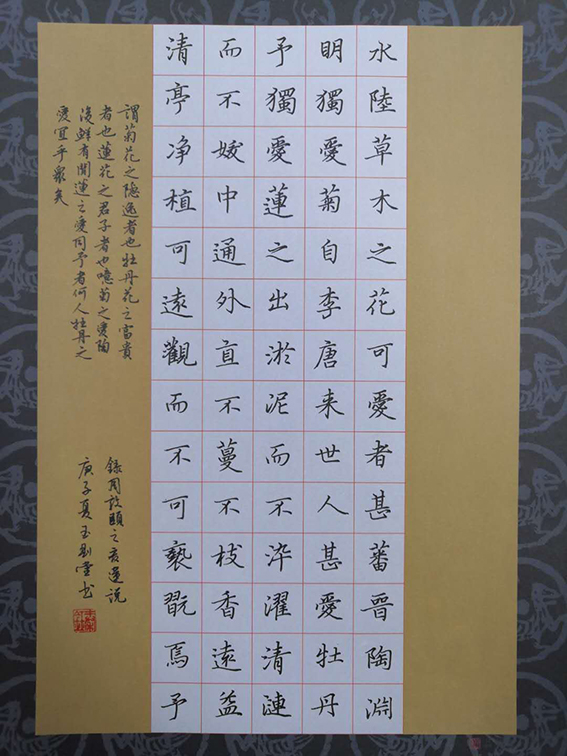 水陸草木之花可愛者甚蕃晉陶淵
明獨愛菊自李唐来世人甚愛牡丹
予獨愛蓮之出淤泥而不淬濯清漣
而不妖中通外直不蔓不枝香遠益
清亭净植可遠觀而不可褻翫焉予
謂菊花之隐逸者也牡丹花之富貴
者也蓮花之君子者也噫菊之愛陶
後鮮有聞蓮之愛同予者何人牡丹之
愛宜乎衆矣
録周敦頤之愛蓮说
庚子夏玉堂书